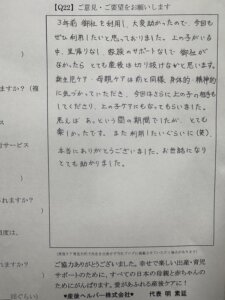 【Q22】ご意見・ご要望をお願いします
3年前 御社を利用し、大変助かったので、今回も
ぜひ利用したいと思っておりました。上の子がいる
中、里帰りなし、家族のサポートなしで 御社が
なかったら とても産後は切り抜けなかと思います。
新生児ケア・母親ケアは前と同様、身体的・精神的
に気づかっていただき、今回はさらに上の子の相手も
してくださり、上の子ケアにもなってもらいました。
思えば あっという間の期間でしたが、とても
楽しかったです。また利用したいくらいに(笑)
本当にありがとうございました。お世話になり
とても助かりました。
ますか?(複
サービス
れますか?
ご協力ありがとうございました。幸せで楽しい出産・育児
サポートのために、すべての日本の母親と赤ちゃんの
ためにがんばります。愛があふれる産後ケアに!
♥産後ヘルパー株式会社♥ 代表 明 素延